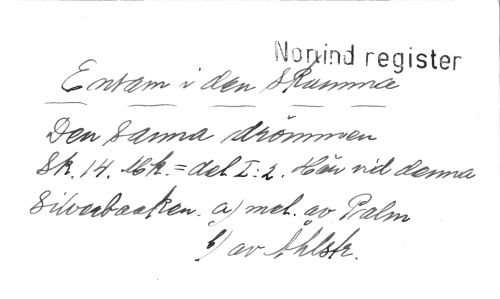 Norlind register
Ensam i den skumma
Den sanna drömmen
Sk. 14. Mk. = del I:2. Här vid denna
Silverbäcken. a) mel. av Palm
b) av Åhlstr.